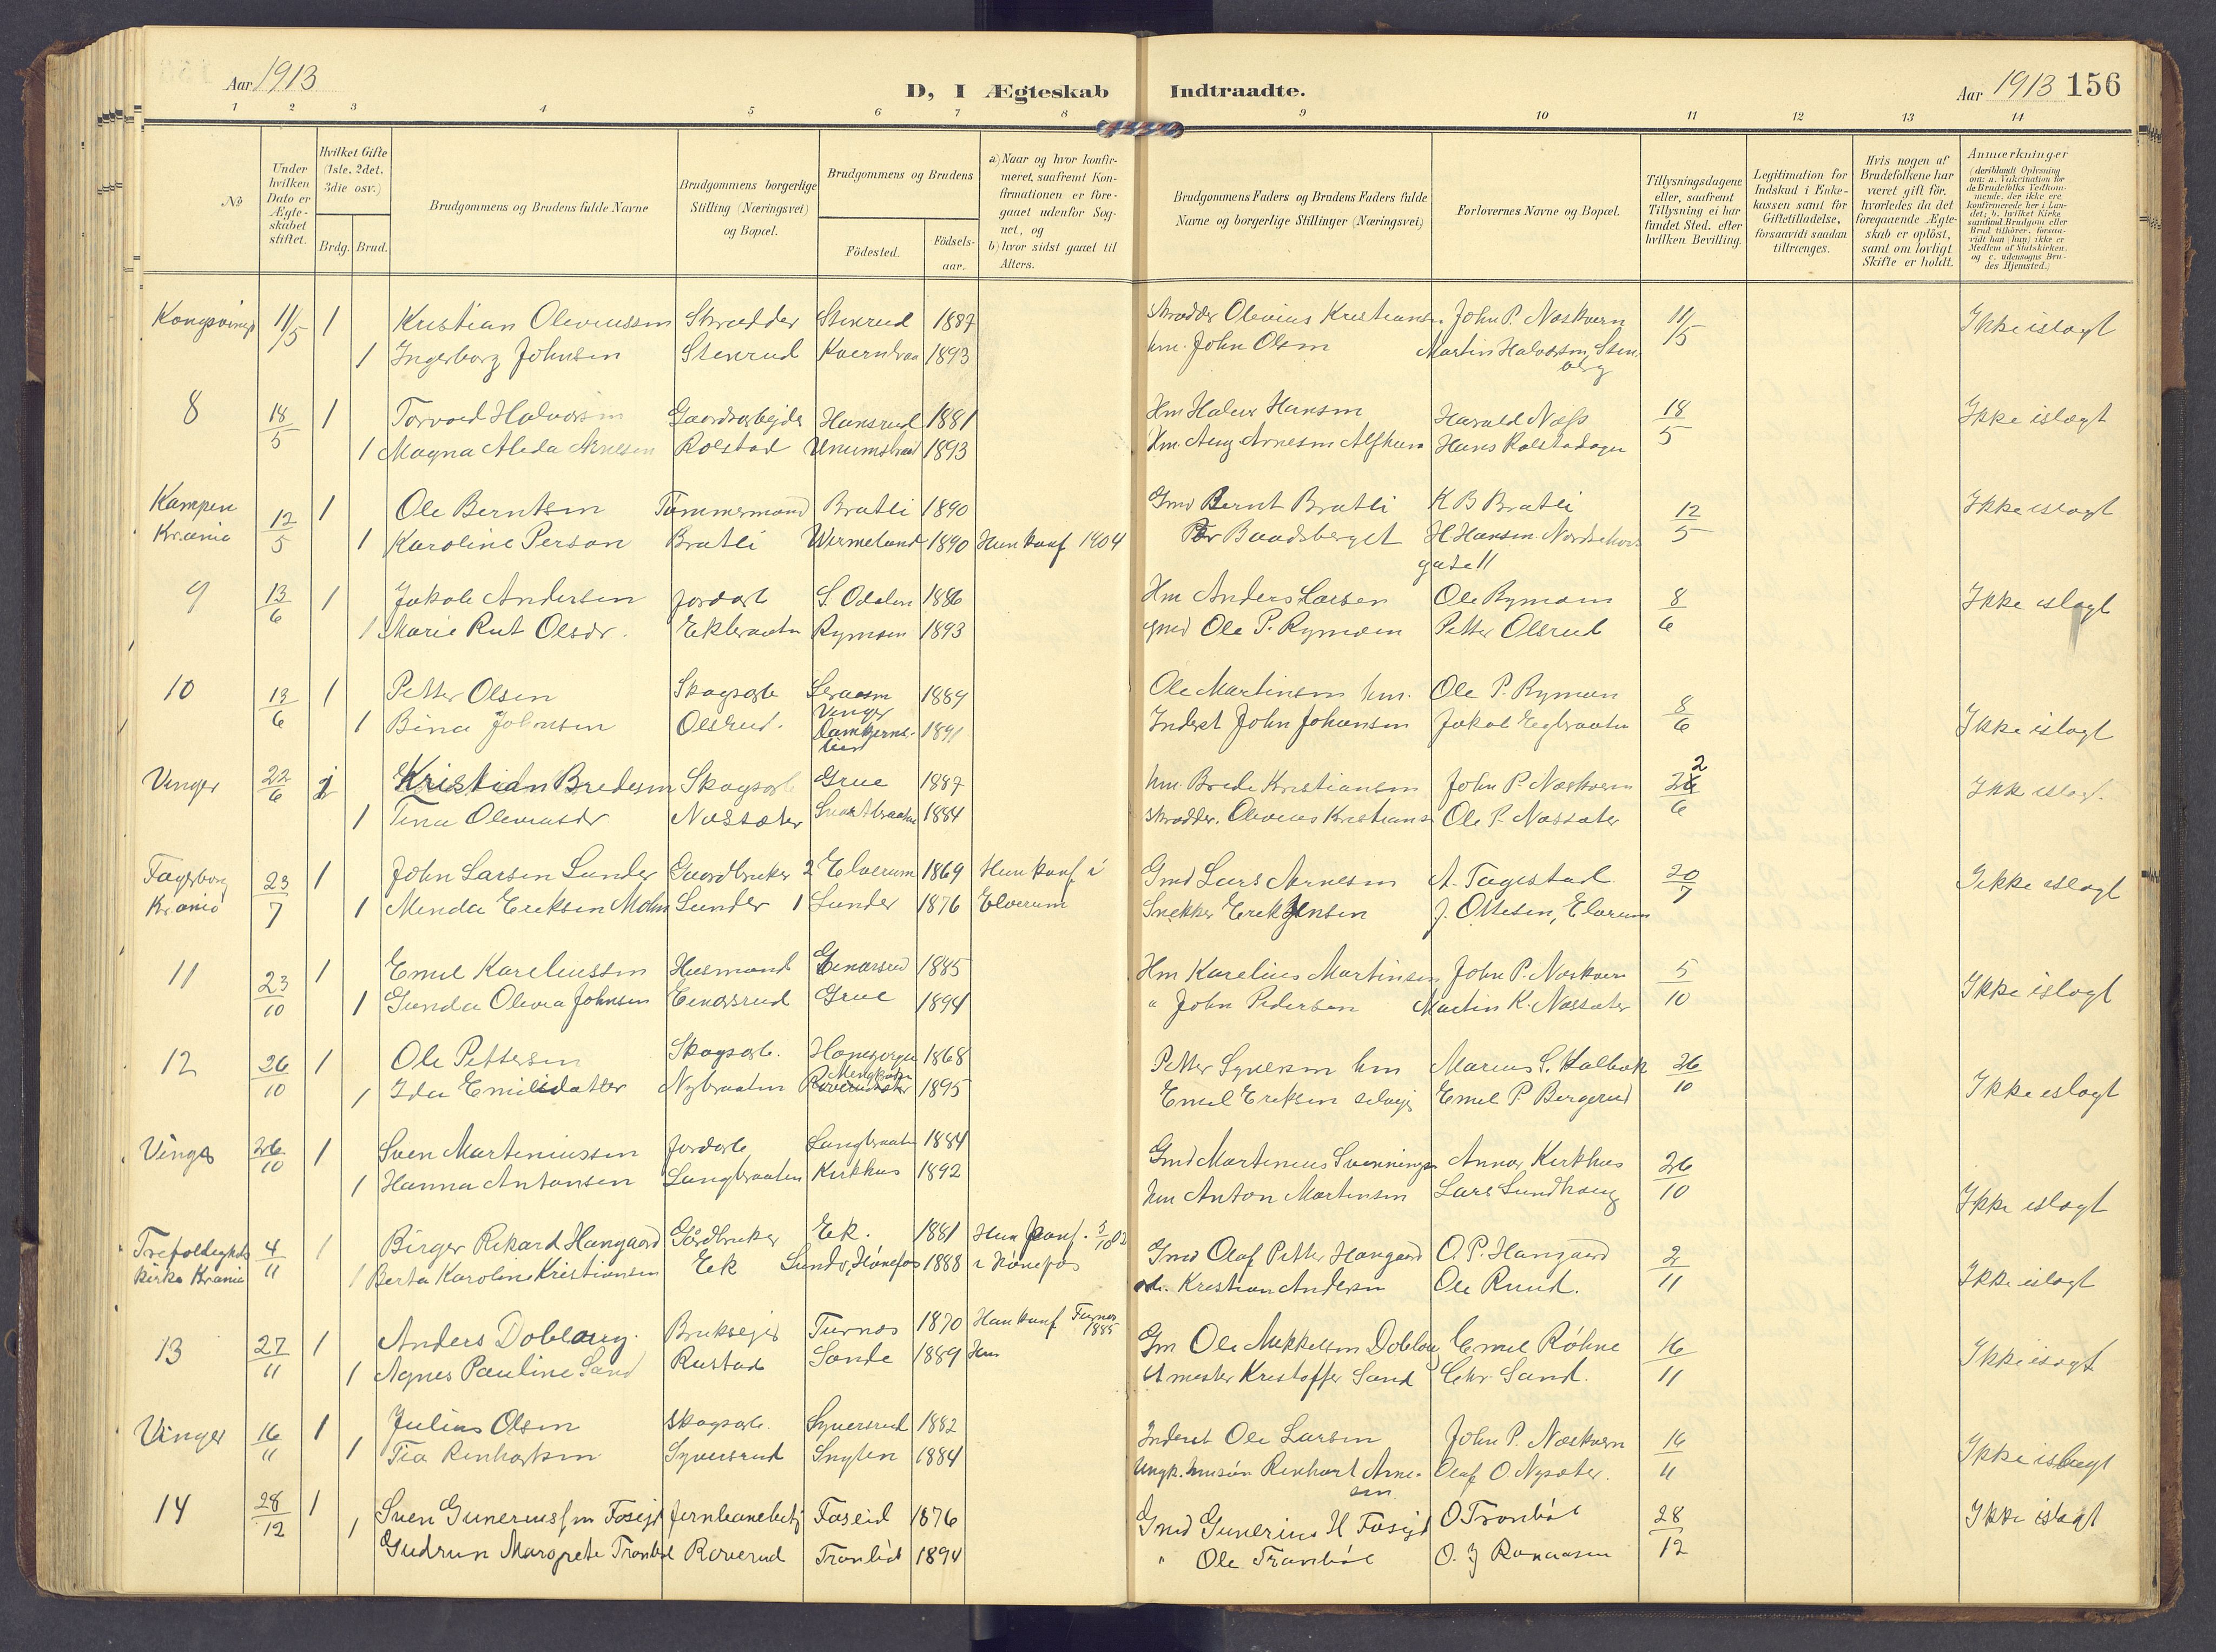 Aar 1913
D, I Ægteskab Indtraadte.
Aar 1913 156
1 2 3 4 5 6 7 8 9 10 11 12 13 14
No
Under hvilken Dato er Ægteskabet stiftet.
Hvilket Gifte (1ste, 2det, 3die osv.)
Brdg. Brud.
Brudgommens og Brudens fulde Navne
Brudgommens borgerlige Stilling (Næringsvei) og Bopæl.
Brudgommens og Brudens
Födested. Födselsaar.
a) Naar og hvor konfirmeret, saafremt Konfirmationen er foregaaet udenfor Sognet, og
b) hvor sidst gaaet til Alters.
Brudgommens Faders og Brudens Faders fulde Navne og borgerlige Stillinger (Næringsvei)
Forlovernes Navne og Bopæl.
Tillysningsdagene eller, saafremt Tillysning ei har fundet Sted, efter hvilken Bevilling.
Legitimation for Indskud i Enkekassen samt for Giftetilladelse, forsaavidt saadan tiltrænges.
Hvis nogen af Brudefolkene har været gift för, hvorledes da det foregaaende Ægteskab er oplöst, samt om lovligt Skifte er holdt.
Anmærkninger (deriblandt Oplysning om: a. Vakcination for de Brudefolks Vedkommende, der ikke ere konfirmerede her i Landet; b. hvilket Kirkesamfund Brudgom eller Brud tilhörer, forsaavidt han (hun) ikke er Medlem af Statskirken, og c. udensogns Brudes Hjemsted.)
11/5 1 Kristian Oleviussen Skrædder Stenrud 1887 Skrædder Olevius Kristians. John P. Næskvern 11/5 Ikke islægt
1 Ingerborg Johnsen Stenrud Kverntraa 1893 hm. John Olsen Martin Halvorsen, Stenberg
8 18/5 1 Torvald Halvorsen Gaardsarbejder Hansrud 1881 Hm Halvor Hansen Harald Næss 18/5 Ikke islægt
1 Magna Aleda Arnesen Rolstad 1893 Hm. Aug Arnesen Hans Rolstadager
Kampen 12/5 1 Ole Berntsen Tømmermand Bratli 1890 Gmd Bernt Bratli K B Bratli 12/5 Ikke islægt
Krania 1 Karoline Person Bratli Wermeland 1890 Hun konf 1904 Per Baadsberget H Hansen
gade 11
9 13/6 1 Jakob Andersen Jordarb S. Odalen 1886 Hm Anders Larsen Ole Rymoen 8/6 Ikke islægt
1 Marie Rut Olsdr. Ekbraaten Rymoen 1893 Gmd Ole P. Rymoen Petter Olsrud
10 13/6 1 Petter Olsen Skogsarb Vinger 1889 Ole Martinsen hm. Ole P. Rymoen 8/6
1 Bina Johnsen Olsrud. 1891 Inderst John Johansen Jakob Ekbraaten Ikke islægt
Vinger 22/6 1 Kristian Bredesen Skogsarb Grue 1887 hm. Brede Kristiansen John P. Næskvern 22/6 Ikke islægt.
1 Tina Oleviusdr Næssæter Svartbraaten 1884 skrædder. Olevius Kristians Ole P. Næssæter
Fagerborg 23/7 1 John Larsen Sander Gaardbruker 2 Elverum 1869 Hun konf i Gmd Lars Arnesen A. Tagestad 20/7 Ikke islægt
Krania 1 Menda Eriksen Mohn Sander 1 Sander 1876 Elverum Snekker Erik Jensen J. Ottesen, Elverum
11 23/10 1 Emil Kareliussen Husmand Einarsrud 1885 Hm Karelius Martinsen John P. Næskvern 5/10 Ikke islægt
1 Gunda Olevia Johnsen Einarsrud Grue 1894 " John Pedersen Martin K. Næssæter
12 26/10 1 Ole Pettersen Skogsarb. 1868 Petter Syversen hm Marius S. Kalbæk 26/10 Ikke islægt
1 Ida Emilsdatter Nybraaten 1895 Emil Eriksen selvej Emil P. Bergerud
Vinger 26/10 1 Sven Martiniussen Jordarb Langbraaten 1884 Gmd Martinius Svenningsen Annar Kirkhus 26/10
1 Hanna Antonsen Langbraaten Kirkhus 1892 hm Anton Martinsen Lars Sundhaug Ikke islægt
Trefoldigheds 4/11 1 Birger Rikard Haugaard Gårdbruker Ek. 1881 Hun konf. 5/10 02 Gmd Olaf Petter Haugaard O. P. Haugaard 2/11
kirke Krania 1 Berta Karoline Kristiansen Ek Sundv, Hönefos 1888 i Hönefos Kristian Andersen Ole Ruud. Ikke islægt
13 27/11 1 Anders Doblaug. Bruksejer Furnes 1870 Han konf Furnes 1885 Gm Ole Mikkelsen Doblaug Emil Röhne 16/11 Ikke islægt
1 Agnes Pauline Sand Rustad Sande 1889 Hun Kristoffer Sand Chr. Sand.
Vinger 16/11 1 Julius Olsen skogsarb. Syversrud 1882 Inderst Ole Larsen John P. Næskvern 16/11 Ikke islægt
1 Tea Renhartsen Syversrud 1884 Ungk. Renhart Arnesen Olaf O. Nysæter.
14 28/12 1 Sven Guneriussen Foseid Jernbanebetj Foseid 1876 Gmd Gunerius H Foseid O Tronböl 28/12 Ikke islægt
1 Gudrun Margrete Tronböl Roverud Tronböl 1894 " Ole Tronböl O. J Ronaasen